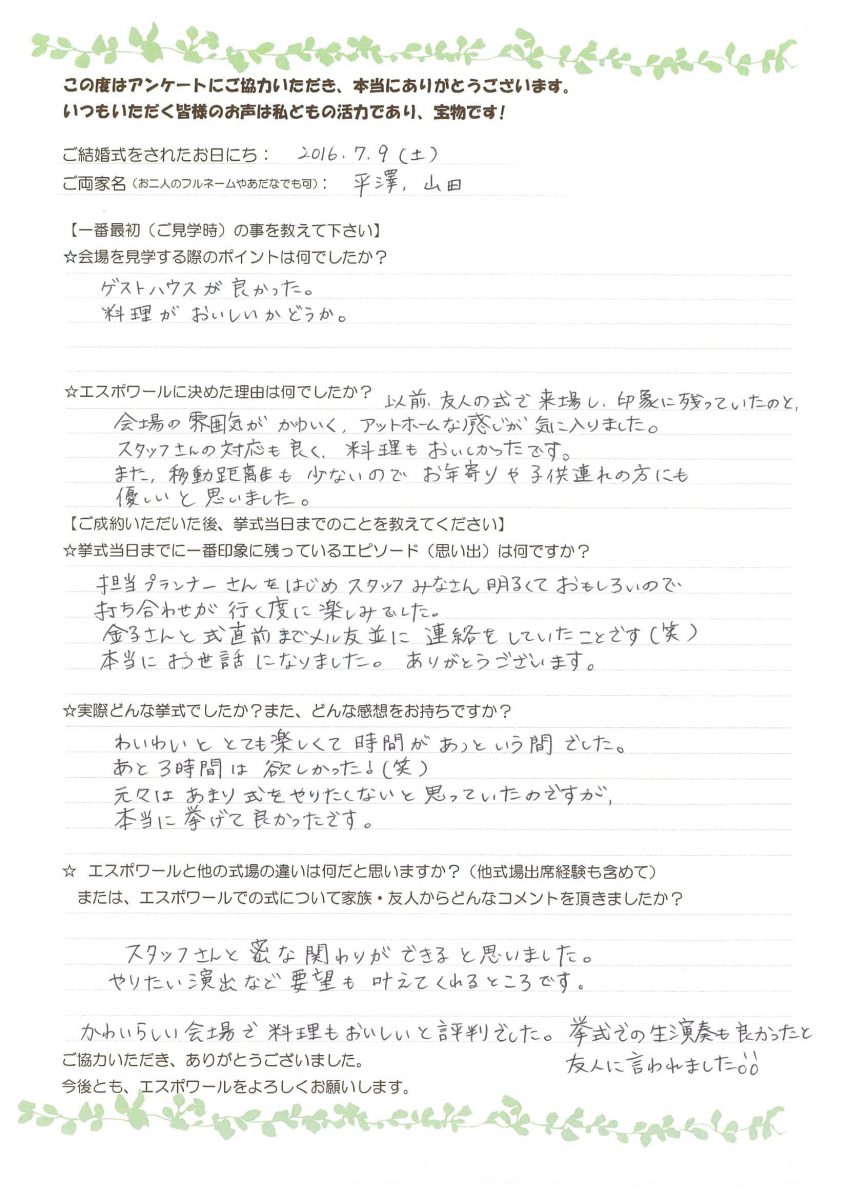 この度はアンケートにご協力いただき、本当にありがとうございます。
いつもいただく皆様のお声は私どもの活力であり、宝物です!
ご結婚式をされたお日にち： 2016.7.9(土)
ご両家名（お二人のフルネームやあだなでも可）： 平澤, 山田
【一番最初（ご見学時）の事を教えて下さい】
☆会場を見学する際のポイントは何でしたか？
ゲストハウスが良かった。
料理がおいしいかどうか。
☆エスポワールに決めた理由は何でしたか？ 以前、友人の式で来場し、印象に残っていたのと、
会場の雰囲気がかわいく、アットホームな感じが気に入りました。
スタッフさんの対応も良く、料理もおいしかったです。
また、移動距離も少ないのでお年寄りや子供連れの方にも
優しいと思いました。
【ご成約いただいた後、挙式当日までのことを教えてください】
☆挙式当日までに一番印象に残っているエピソード（思い出）は何ですか？
担当プランナーさんをはじめスタッフみなさん明るくておもしろいので
打ち合わせが行く度に楽しみでした。
金子さんと式直前までメル友並に連絡をしていたことです(笑)
本当にお世話になりました。ありがとうございます。
☆実際どんな挙式でしたか？また、どんな感想をお持ちですか？
わいわいととても楽しくて時間があっという間でした。
あと3時間は欲しかった!(笑)
元々はあまり式をやりたくないと思っていたのですが、
本当に挙げて良かったです。
☆ エスポワールと他の式場の違いは何だと思いますか？（他式場出席経験も含めて）
または、エスポワールでの式について家族・友人からどんなコメントを頂きましたか？
スタッフさんと密な関わりができると思いました。
やりたい演出など要望も叶えてくれるところです。
かわいらしい会場で料理もおいしいと評判でした。挙式での生演奏も良かったと
友人に言われました
ご協力いただき、ありがとうございました。
今後とも、エスポワールをよろしくお願いします。